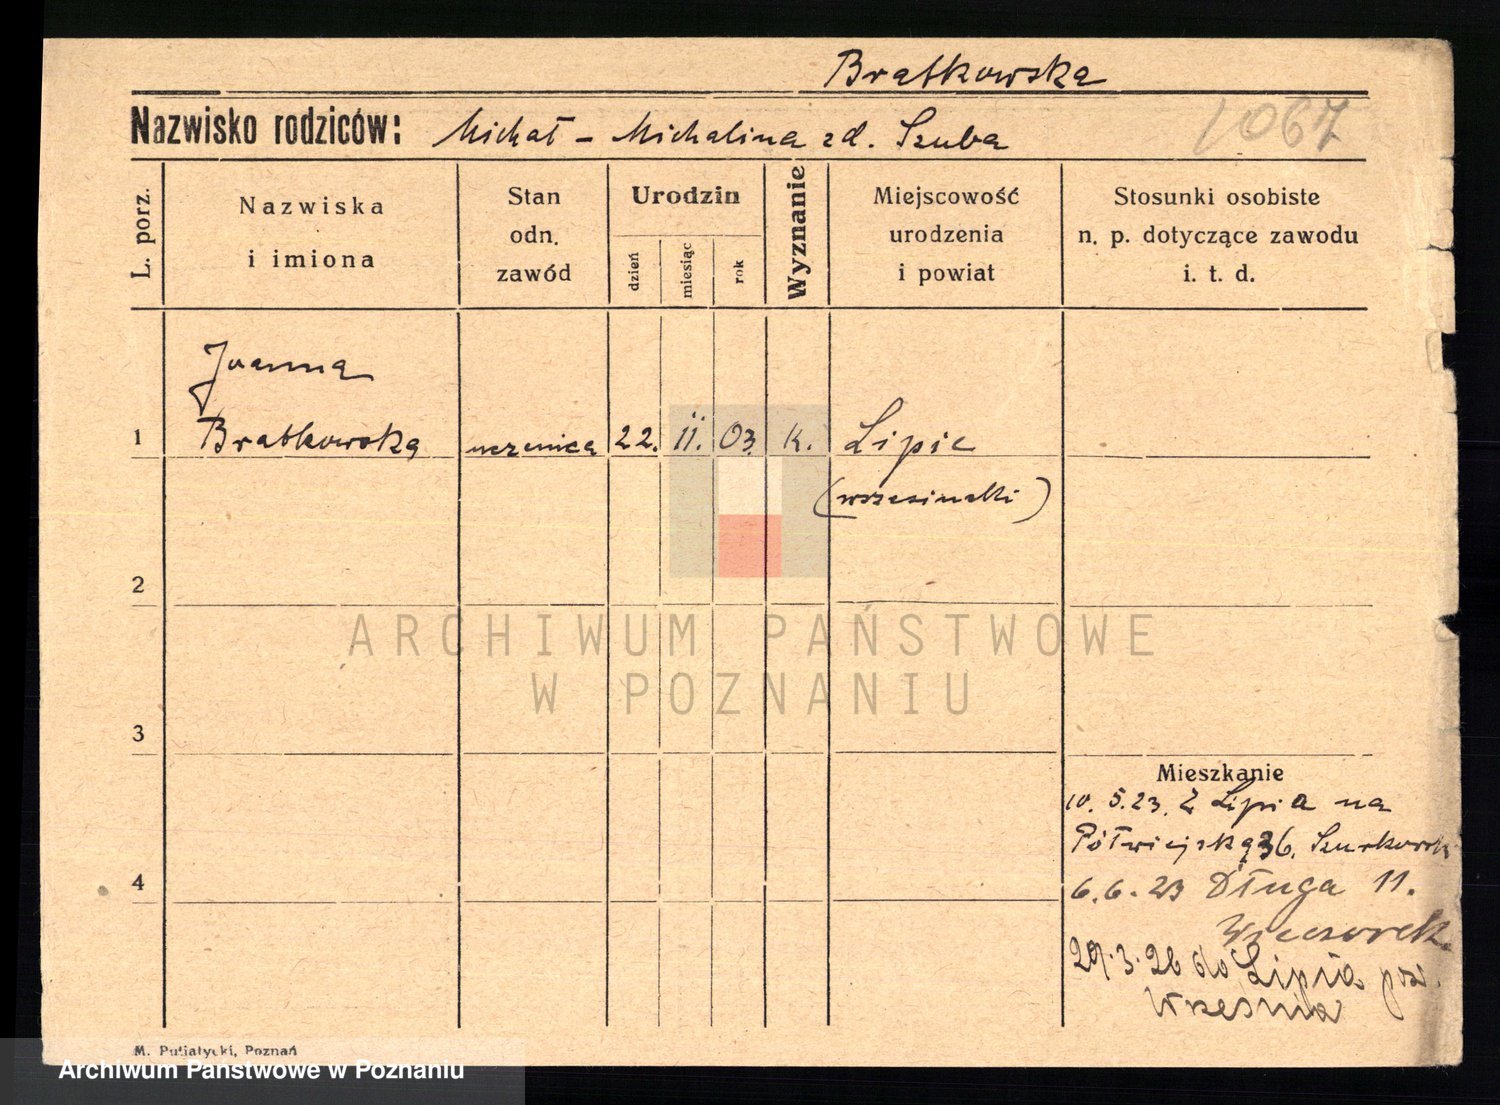 Bratkowska
Nazwisko rodziców: Michał - Michalina zd. Szuba
1067
L. porz.
Nazwiska
i imiona
Stan
odn.
zawód
Urodzin
dzień
miesiąc
rok
Wyznanie
Miejscowość
urodzenia
i powiat
Stosunki osobiste
n. p. dotyczące zawodu
i. t. d.
Joanna
1 Bratkowska uczenica 22. 11. 03 k. Lipie
(wrzesiński)
2
ARCHIWUM PAŃSTWOWE
W POZNANIU
3
Mieszkanie
10. 5. 23. z Lipia na
Półwiejską 36.
4
6.6.23 Długa 11.
Wieczorek
29.3.26 do Lipia pow.
Września
M. Putiatycki, Poznań
Archiwum Państwowe w Poznaniu